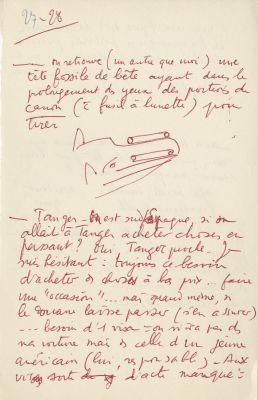 27-28
— on retrouve (un autre que moi) une
tête fossile de bête ayant dans le
prolongement des yeux des portions de
canon (à fusil à lunette) pour
tirer
— Tanger - on est sur Espagne, si on
allait à Tanger acheter choses en
passant? Oui, Tanger proche. Je
suis hésitant: toujours ce besoin
d'acheter des choses à bas prix... faire
une "occasion"... mais quand même, si
la douane laisse passer (s'en assurer)
... besoin d'1 visa = on n'ira pas ds
ma voiture mais ds celle d'un jeune
américain (lui, responsable) - Aux
vitres sorte d'acte manqué =